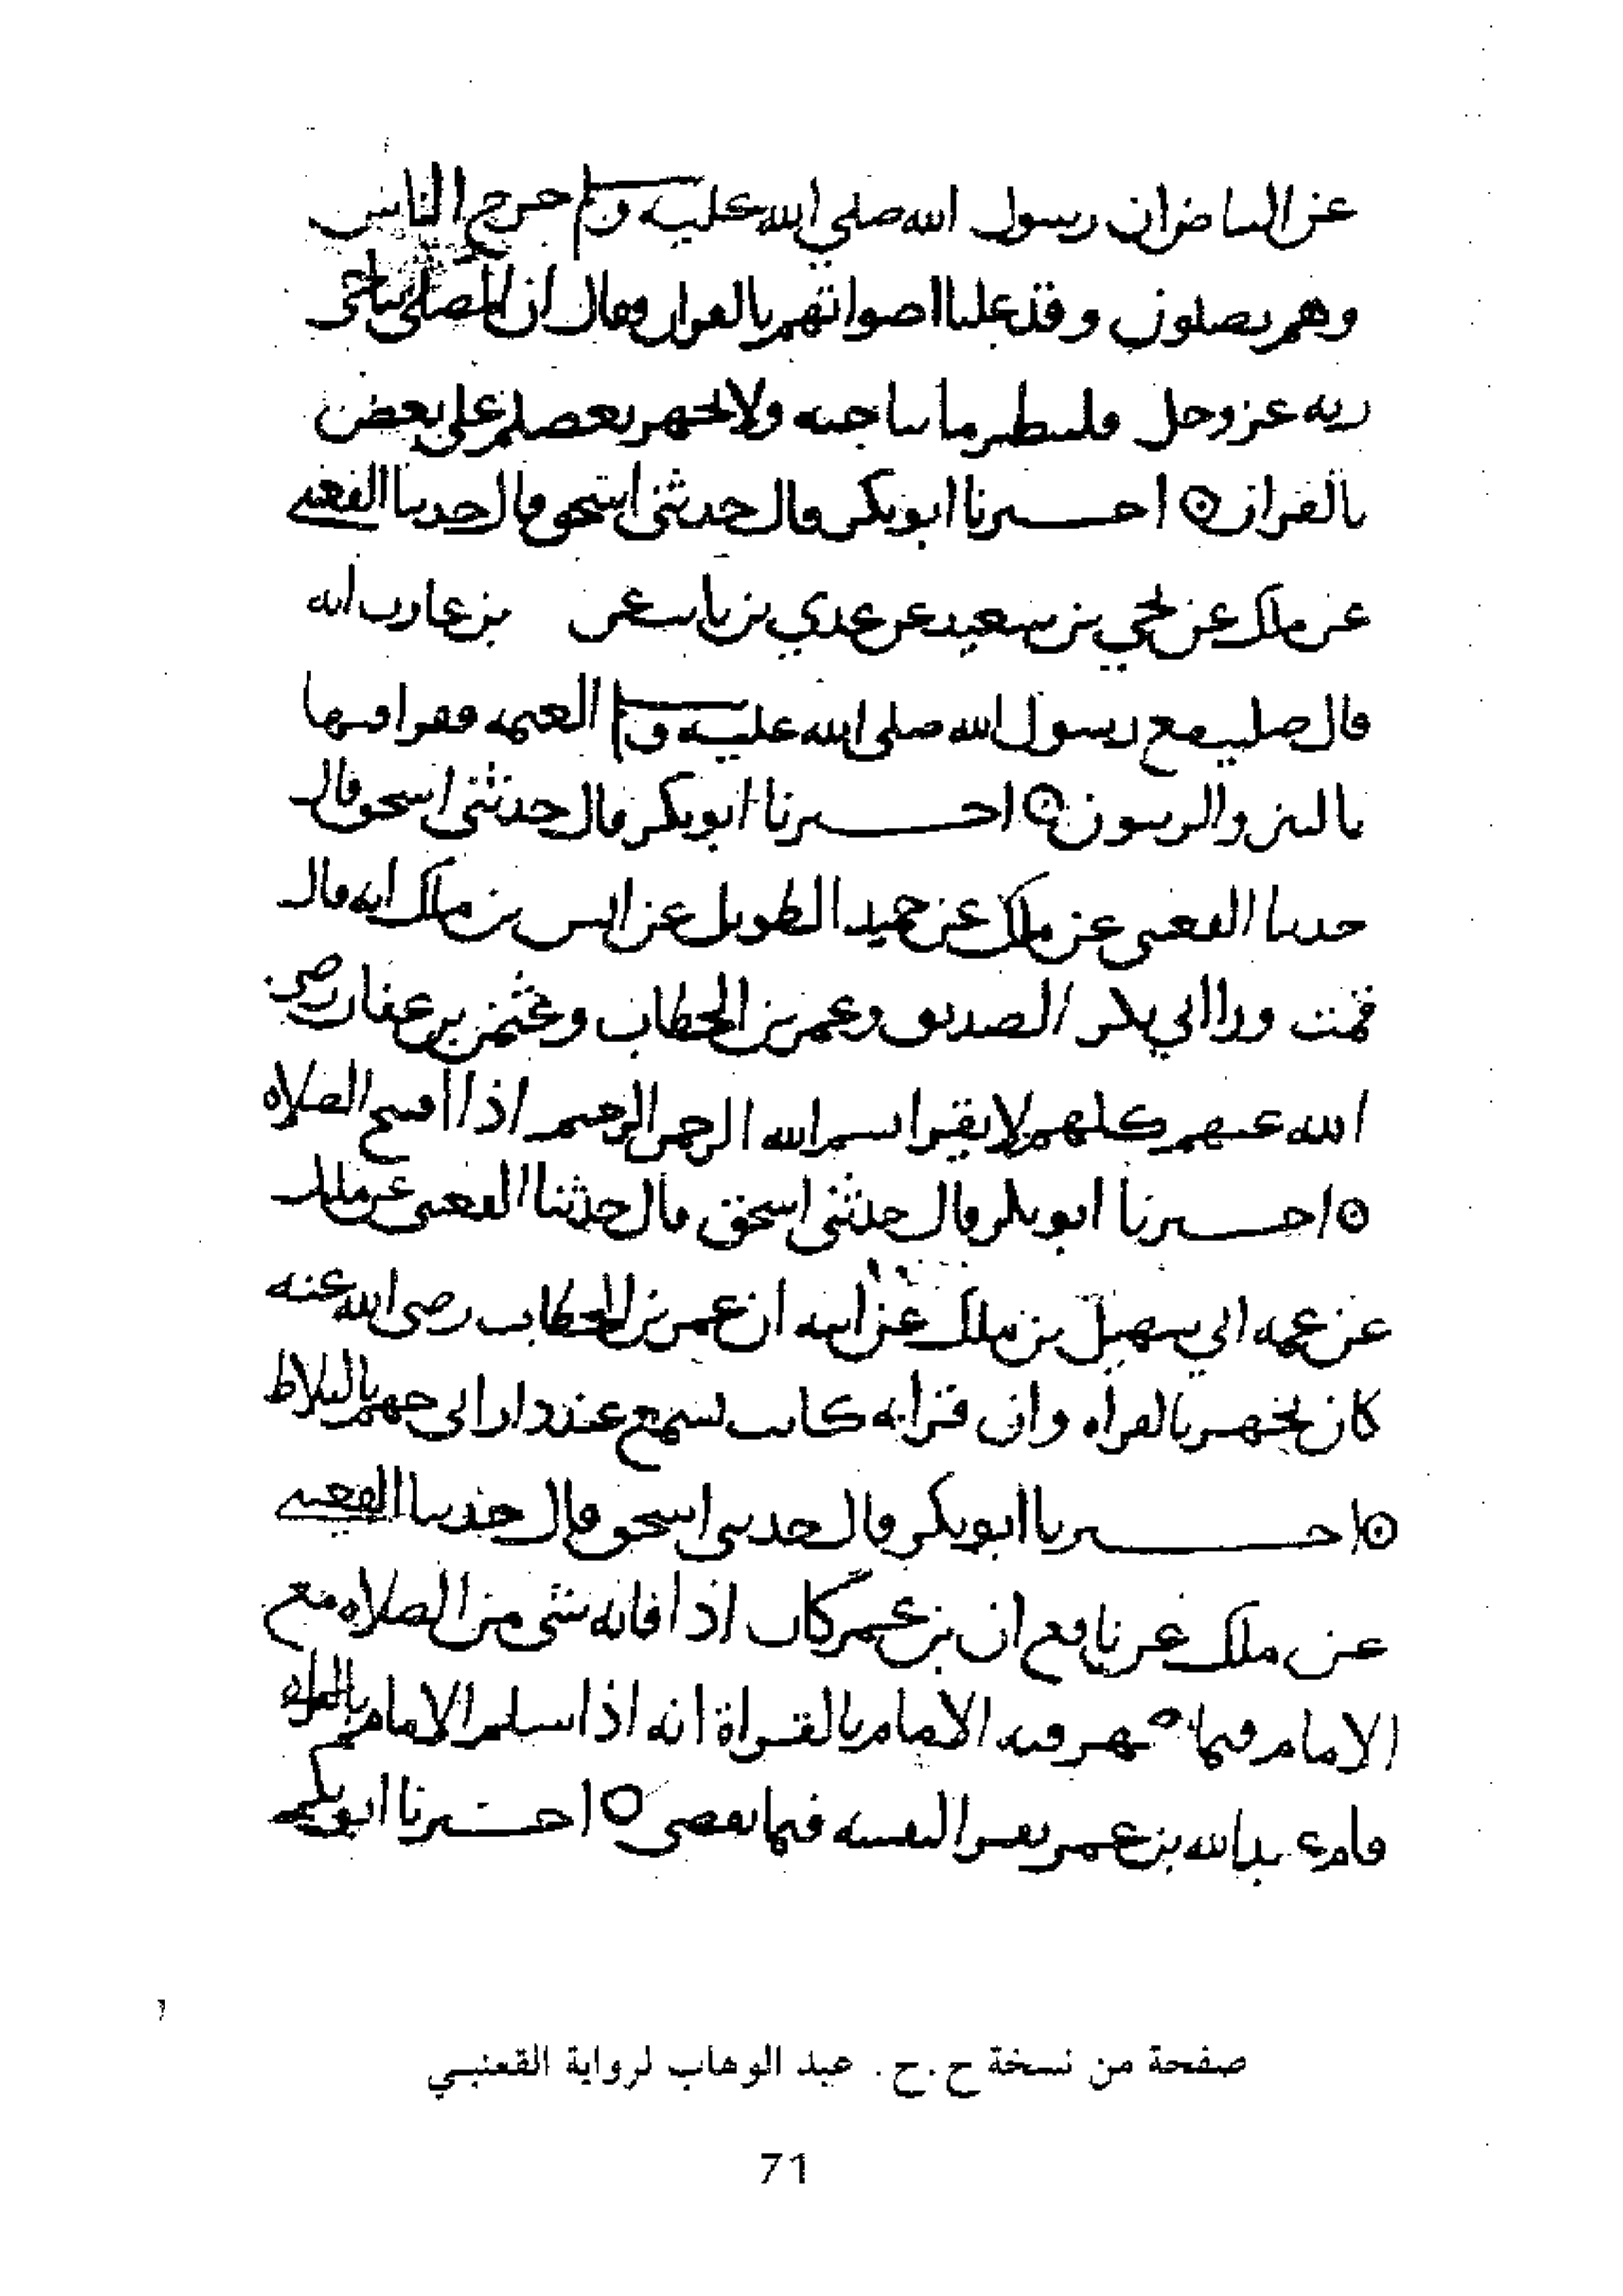 عن البياضي ان رسول الله صلى الله عليه وسلم خرج الناس
وهم يصلون وقد علت اصواتهم بالقران فقال ان المصلي يناجي
ربه عز وجل فلينظر ما يناجيه ولا يجهر بعضكم على بعض
بالقران اخبرنا ابو بكر قال حدثني اسحق قال حدثنا القعنبي
عن ملك عن يحيى بن سعيد عن عدي بن ثابت عن بن عازب انه
قال صليت مع رسول الله صلى الله عليه وسلم العتمة فقرا فيها
بالتين والزيتون اخبرنا ابو بكر قال حدثني اسحق قال
حدثنا القعنبي عن ملك عن حميد الطويل عن انس بن ملك انه قال
قمت ورا ابي بكر الصديق وعمر بن الخطاب وعثمن بن عفان رضي
الله عنهم كلهم لا يقرا بسم الله الرحمن الرحيم اذا افتتح الصلاه
اخبرنا ابو بكر قال حدثني اسحق قال حدثنا القعنبي عن ملك
عن عمه ابي سهيل بن ملك عن ابيه ان عمر بن الخطاب رضي الله عنه
كان يجهر بالقراه وان قراته كانت تسمع عند دار ابي جهم بالبلاط
اخبرنا ابو بكر قال حدثني اسحق قال حدثنا القعنبي
عن ملك عن نافع ان بن عمر كان اذا فاته شي من الصلاه مع
الامام فيما جهر فيه الامام بالقراة انه اذا سلم الامام
قام عبد الله بن عمر يقرا لنفسه فيما يقضي اخبرنا ابو بكر
صفحة من نسخة ح.ح. عبد الوهاب لرواية القعنبي
71